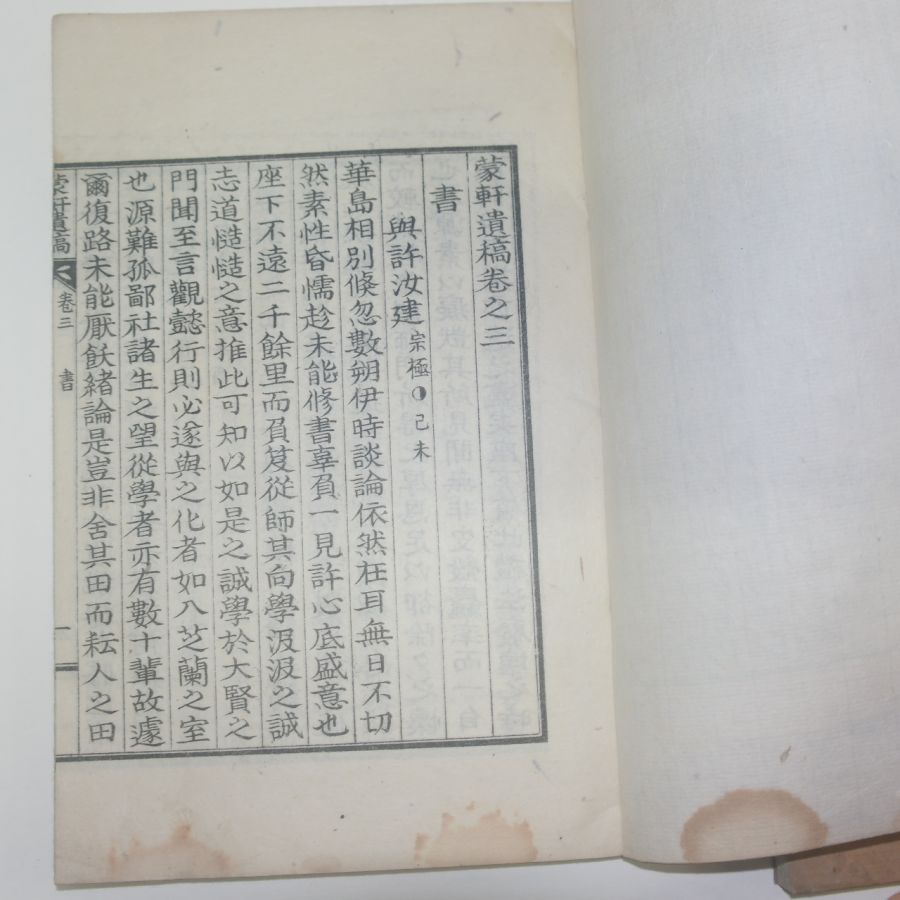 蒙軒遺稿卷之三
書
與許汝建宗極◑己未
華島相別倏忽數朔伊時談論依然在耳無日不切
然素性昏懦趁未能修書辜負一見許心底盛意也
座下不遠二千餘里而負笈從師其向學汲汲之誠
志道慥慥之意推此可知以如是之誠學於大賢之
門聞至言觀懿行則必遂與之化者如入芝蘭之室
也源難孤鄙社諸生之望從學者亦有數十輩故遽
爾復路未能厭飫緒論是豈非舍其田而耘人之田
蒙軒遺稿
卷三
書
一